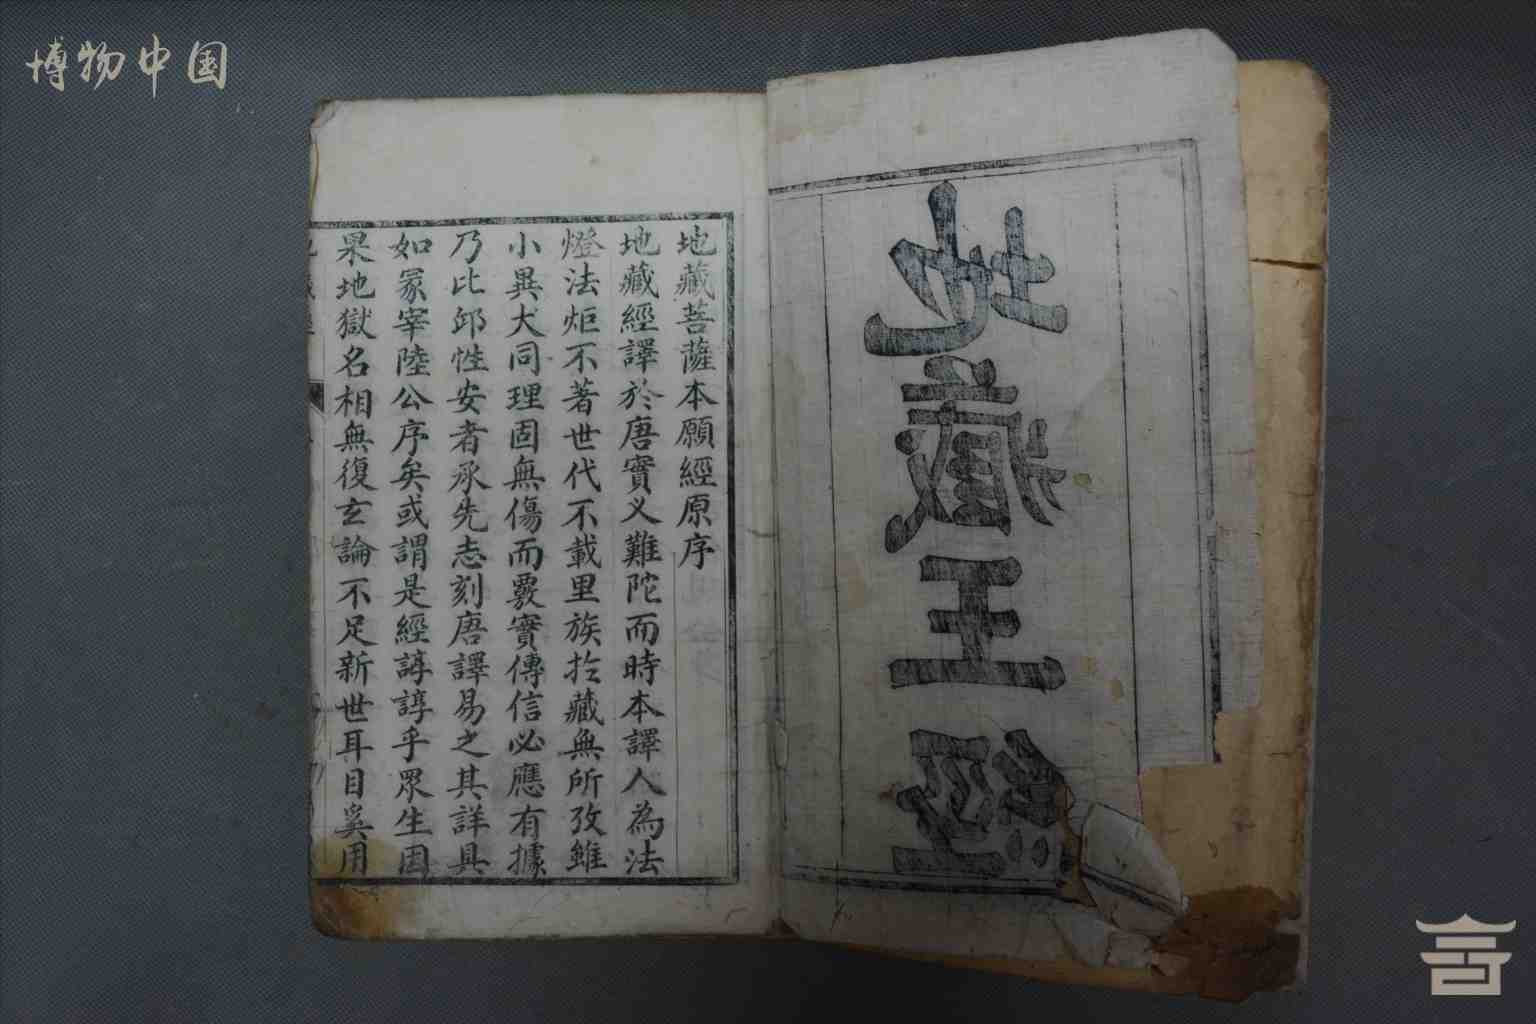 博物中国
地藏王經
地藏菩薩本願經原序
地藏經譯於唐實义難陀而時本譯人為法
燈法炬不著世代不載里族扵藏無所攷雖
小異大同理固無傷而覈實傳信必應有據
乃比邱性安者承先志刻唐譯易之其詳具
如冡宰陸公序矣或謂是經諄諄乎眾生因
果地獄名相無復玄論不足新世耳目奚用